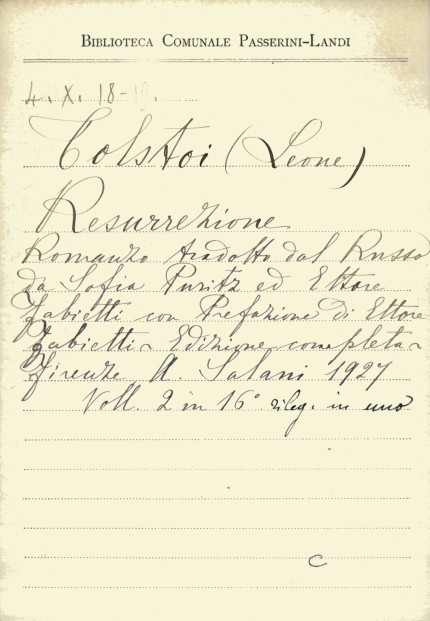 BIBLIOTECA COMUNALE PASSERINI-LANDI
4. X. 18-19.
Tolstoi (Leone)
Resurrezione
Romanzo tradotto dal Russo
da Sofia Puritz ed Ettore
Fabietti con Prefazione di Ettore
Fabietti - Edizione completa -
Firenze A. Salani 1927
Voll. 2 in 16° rileg. in uno
C